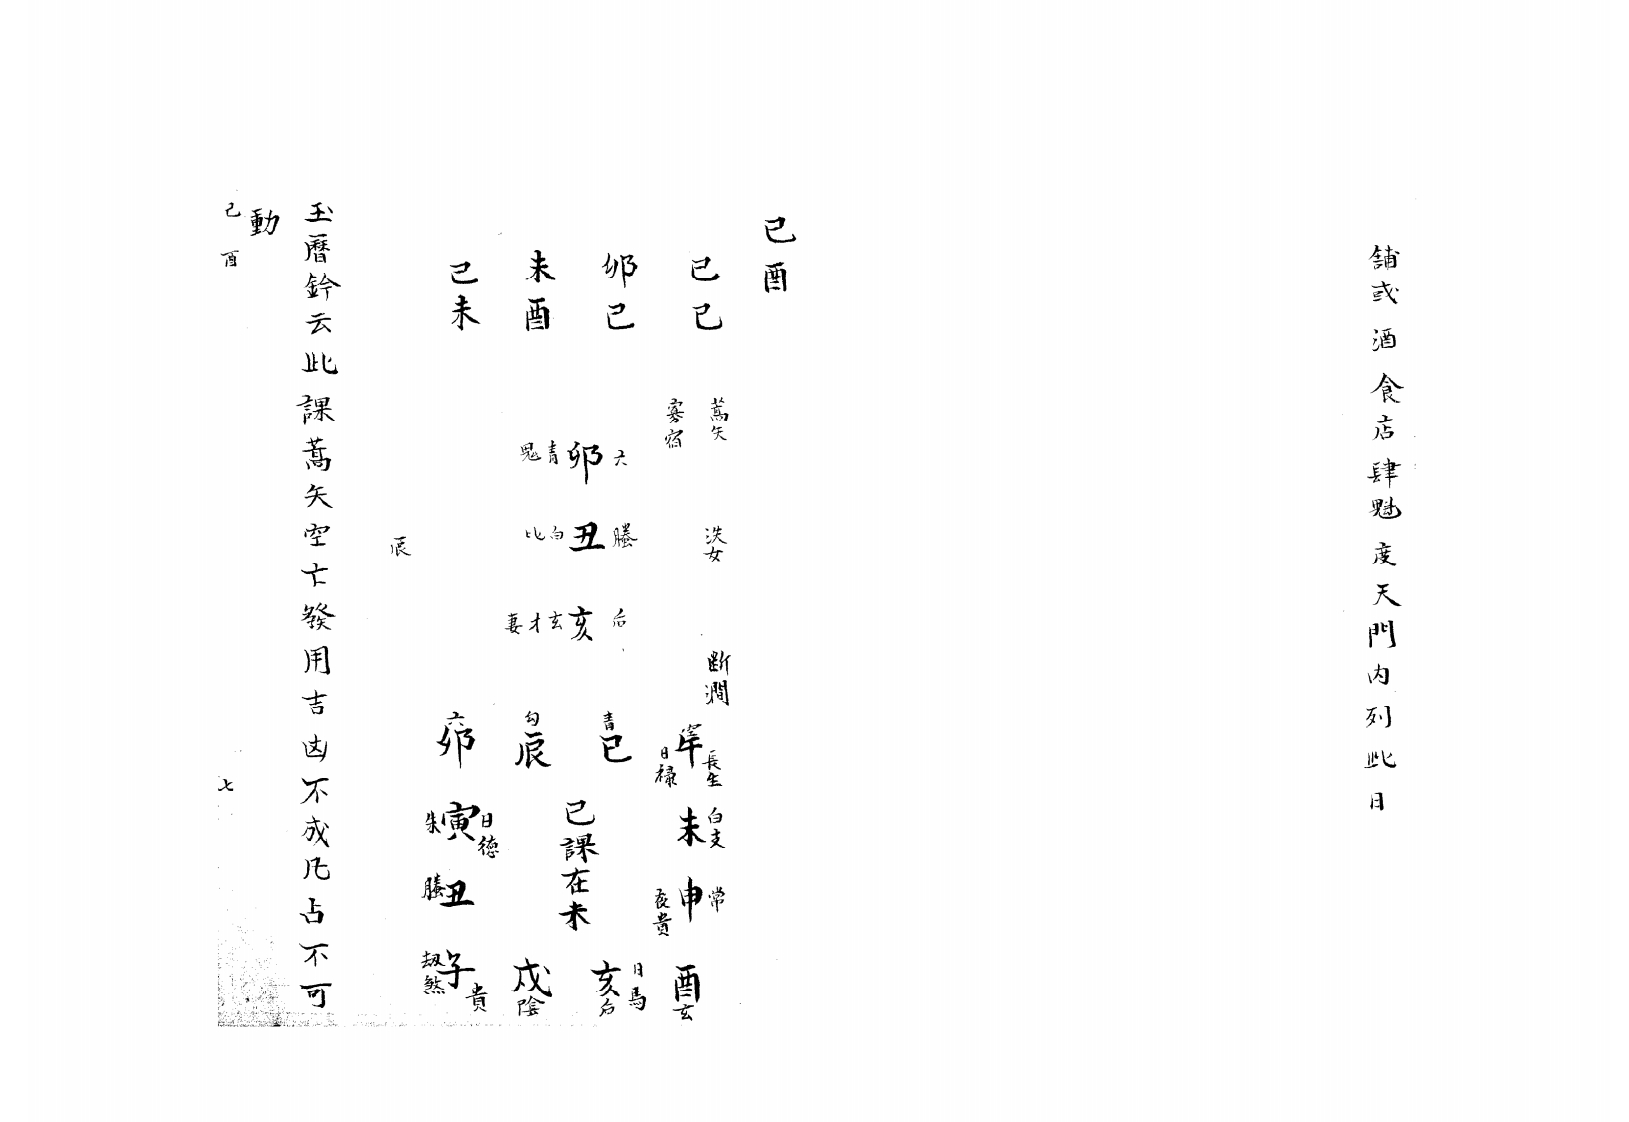 舖或酒食店肆魁度天門内列此日
己酉
巳 卯 未 己
巳 巳 酉 未
蒿矢
寡宿
泆女
斷澗
六 卯 青 鬼
螣 丑 白 比
后 亥 玄 才 妻
辰
六 勾 青 空
卯 辰 巳 午 長生 日祿
朱 寅 日德 未 白 支
螣 丑 申 常 夜貴
己課在未
劫煞 子 貴 戌 陰 亥 后 日馬 酉 玄
玉曆鈐云此課蒿矢空亡發用吉凶不成凡占不可
動
己酉 七